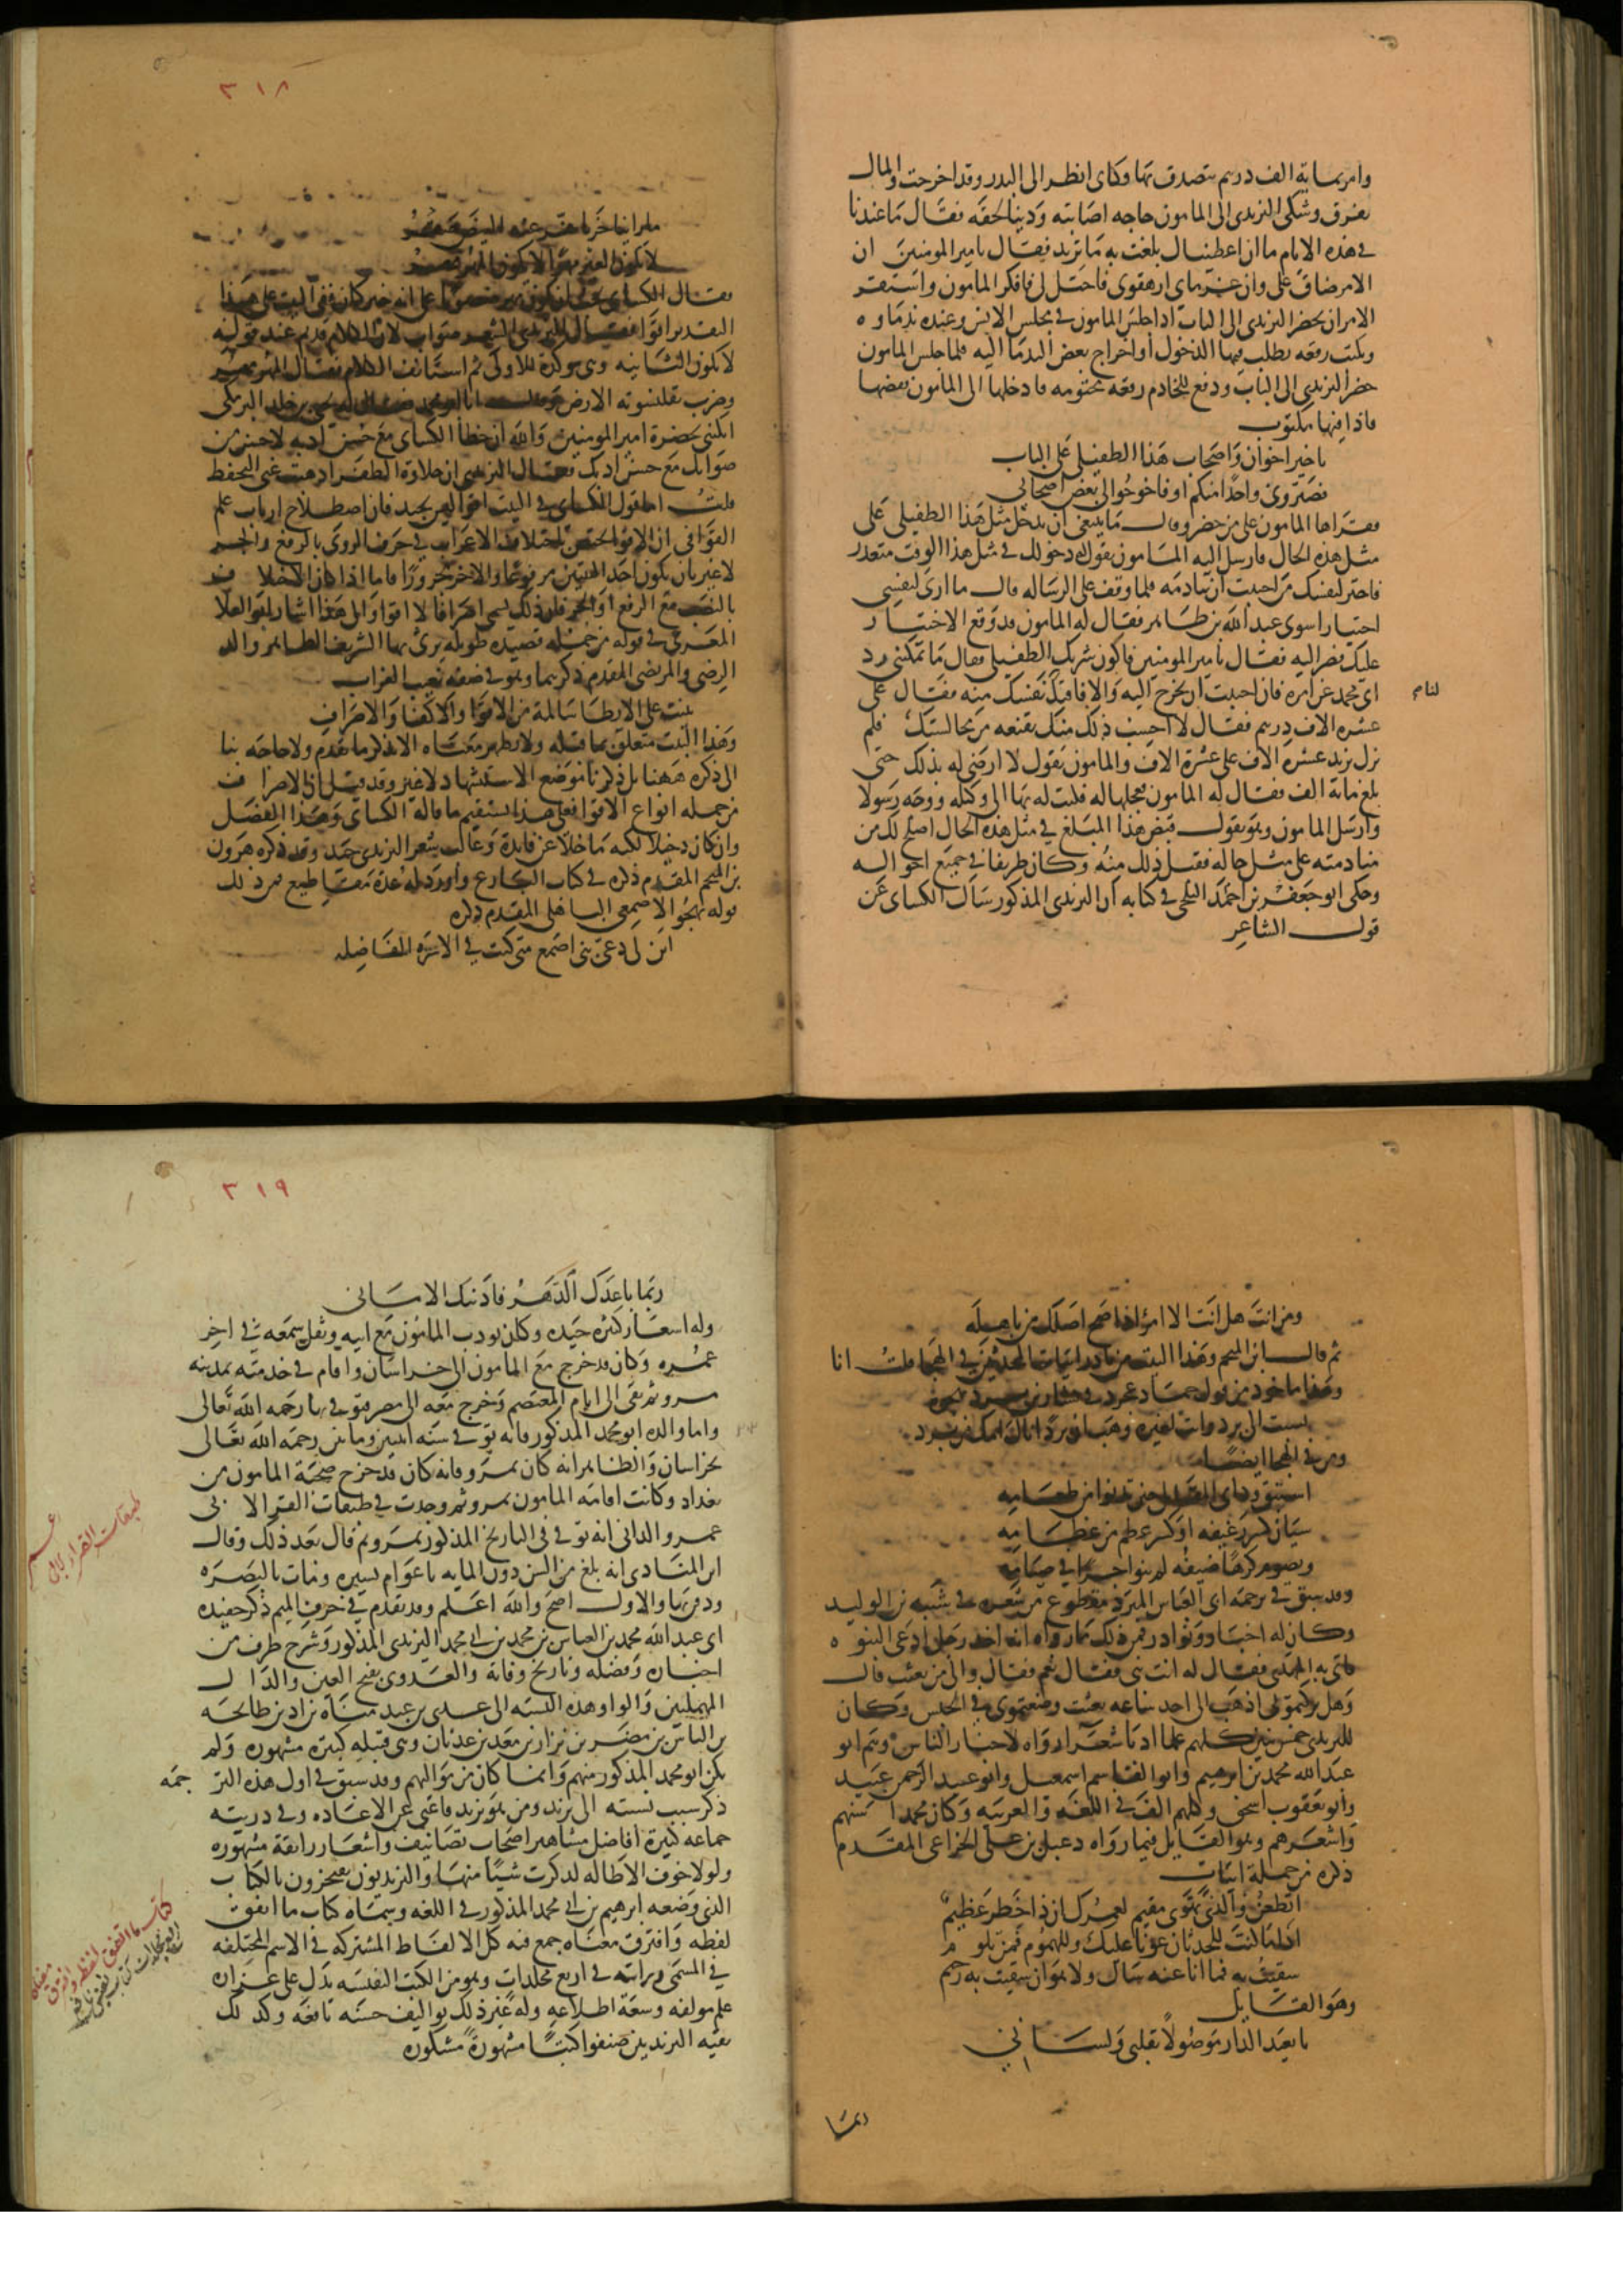 وامر بماية الف درهم يتصدق بها وكاى انظر الى البدر وقد اخرجت والمال
يفرق وشكى اليزيدى الى المامون حاجه اصابته ودينا لحقه فقال ما عندنا
فى هذه الايام ما ان اعطيناك بلغت به ما تريد فقال يا مير المومنين ان
الامر ضاق على وان غرماى ارهقونى فاحتل لى فافكر المامون واستقر
الامر ان يحضر اليزيدى الى الباب اذا جلس المامون فى مجلس الانس وعنده ندماوه
ويكتب رقعه يطلب فيها الدخول او اخراج بعض الندما اليه فلما جلس المامون
حضر اليزيدى الى الباب ودفع للخادم رقعه مختومه فادخلها الى المامون ففضها
فاذا فيها مكتوب
يا خير اخوان واصحاب هذا الطفيلى على الباب
فصيرونى واحدا منكم او فاخرجوا لى بعض اصحابى
فقراها المامون على من حضر وقال ما ينبغى ان يدخل مثل هذا الطفيلى على
مثل هذه الحال فارسل اليه المامون يقول دخولك فى مثل هذا الوقت متعذر
فاختر لنفسك من احببت ان تنادمه فلما وقف على الرساله قال ما ارى لنفسى
اختيارا سوى عبد الله بن طاهر فقال له المامون قد وقع الاختيار
عليك فصر اليه فقال يا مير المومنين فاكون شريك الطفيلى فقال ما يمكننى رد
ابى محمد عن امره فان احببت ان تخرج اليه والا فافتد نفسك منه فقال على
عشره الاف درهم فقال لا احسب ذلك منك يقنعه من مجالستك فلم
يزل يزيد عشره الاف على عشرة الاف والمامون يقول لا ارضى له بذلك حتى
بلغ مائة الف فقال له المامون فعجلها له فكتب له بها الى وكيله ووجه رسولا
وارسل المامون وهو يقول قبض هذا المبلغ فى مثل هذه الحال اصلح لك من
منادمته على مثل حاله فقبل ذلك منه وكان ظريفا فى جميع احواله
وحكى ابو جعفر بن احمد البلخى فى كتابه ان اليزيدى المذكور سال الكساى عن
قول الشاعر
٣١٨
ما راينا خربا نقر عنه البيض صقر
لا يكون العير مهرا لا يكون المهر مهر
فقال الكساى يجب ان يكون مهر منصوبا على انه خبر كان ففى البيت على هذا
التقدير اقوا فقال اليزيدى الشعر صواب لان الكلام قد تم عند قوله
لا يكون الثانيه وهى موكدة للاولى ثم استانف الكلام فقال المهر مهر
وضرب بقلنسوته الارض وقال انا ابو محمد فقال له يحيى بن خالد البرمكى
اتكنى بحضرة امير المومنين والله ان خطا الكساى مع حسن ادبه لاحسن من
صوابك مع حسن ادبك فقال اليزيدى ان حلاوة الظفر اذهبت عنى التحفظ
قلت اما قول الكساى فى البيت اقوا ليس بجيد فان اصطلاح ارباب علم
القوافى ان الاقوا يختص باختلاف الاعراب فى حرف الروى بالرفع والجر
لا غير بان يكون احد البيتين مرفوعا والاخر مجرورا فاما اذا كان الاختلاف
بالنصب مع الرفع او الجر فان ذلك يسمى اصرافا لا اقوا والى هذا اشار ابو العلا
المعرى فى قوله من جملة قصيده طويله يرثى بها الشريف الطاهر والد
الرضى والمرتضى المقدم ذكرهما وهو فى صفه نعيب الغراب
بنيت على الايطا سالمة من الاقوا والاكفا والاصراف
وهذا البيت متعلق بما قبله ولا يظهر معناه الا بذكر ما تقدم ولا حاجه بنا
الى ذكره ههنا بل ذكرنا موضع الاستشهاد لا غير وقد قيل ان الاصراف
من جمله انواع الاقوا فعلى هذا يستقيم ما قاله الكساى وهذا الفصل
وان كان دخيلا لكنه ما خلا عن فايدة وغالب شعر اليزيدى جيد وقد ذكره هرون
بن المنجم المقدم ذكره فى كتاب البارع واورد له عدة مقاطيع فمن ذلك
قوله يهجو الاصمعى الباهلى المقدم ذكره
ابن لى دعى بنى اصمع متى كنت فى الاسره الفاضله
ومن انت هل انت الا امرؤ اذا صح اصلك من باهله
ثم قال ابن المنجم وهذا البيت من نادر ابيات المحدثين فى الهجا قلت انا
وهذا ماخوذ من قول حماد عجرد فى بشار بن برد يهجوه
نسبت الى برد وانت لغيره وهب ان بردا ... امك من برد
وله فى الهجا ايضا
استبق ود ابى المقاتل حين تدنوا من طعامه
سيان كسر رغيفه او كسر عظم من عظامه
ويصوم كرها ضيفه لم ينو اجرا فى صيامه
وقد سبق فى ترجمه ابى العباس المبرد مقطوع من شعره فى شيبه بن الوليد
وكان له اخبار ونوادر فمن ذلك ما رواه انه اخذ رجل ادعى النبوه
فاتى به المهدى فقال له انت نبى فقال نعم فقال والى من بعثت قال
وهل تركتمونى اذهب الى احد ساعه بعثت وضعتمونى فى الحبس وكان
لليزيدى خمس بنين كلهم علما ادبا شعرا رواه لاخبار الناس وهم ابو
عبد الله محمد بن ابرهيم وابو القاسم اسمعيل وابو عبد الرحمن عبيد
وابو يعقوب اسحق وكلهم الف فى اللغه والعربيه وكان محمد اسنهم
واشعرهم وهو القايل فيما رواه دعبل بن على الخزاعى المقدم
ذكره من جملة ابيات
اتظعن والذى تهوى مقيم لعمرك ان ذا خطر عظيم
اذا ما كنت للحدثان عونا عليك وللهموم فمن تلوم
شقيت به فما انا عنه سال ولا هو ان شقيت به رحيم
وهو القايل
يا بعيد الدار موصولا بقلبى ولسانى
ربما
٣١٩
ربما باعدك الدهر فادنتك الامانى
وله اشعار كثيره جيده وكان يودب المامون مع ابيه وثقل سمعه فى اخر
عمره وكان قد خرج مع المامون الى خراسان واقام فى خدمته بمدينه
مرو ثم بقى الى ايام المعتصم وخرج معه الى مصر فتوفى بها رحمه الله تعالى
واما والده ابو محمد المذكور فانه توفى سنه اثنين ومايتين رحمه الله تعالى
بخراسان والظاهر انه كان بمرو فانه كان قد خرج صحبة المامون من
بغداد وكانت اقامه المامون بمرو ثم وجدت فى طبقات القرا لابى
عمرو الدانى انه توفى فى التاريخ المذكور بمرو ثم قال بعد ذلك وقال
ابن المنادى انه بلغ من السن دون المايه باعوام يسيره ومات بالبصره
ودفن بها والاول اصح والله اعلم وقد تقدم فى حرف الميم ذكر حفيده
ابى عبد الله محمد بن العباس بن محمد بن ابى محمد اليزيدى المذكور وشرح طرف من
اخباره وفضله وتاريخ وفاته والعدوى بفتح العين والدال
المهملتين والواو هذه النسبه الى عدى بن عبد مناة بن اد بن طابخه
بن الياس بن مضر بن نزار بن معد بن عدنان وهى قبيله كبيره مشهوره ولم
يكن ابو محمد المذكور منهم وانما كان من مواليهم وقد سبق فى اول هذه الترجمه
ذكر سبب نسبته الى يزيد ومن هو يزيد فاغنى عن الاعاده وفى ذريته
جماعه كبيرة افاضل مشاهير اصحاب تصانيف واشعار رائقة مشهوره
ولولا خوف الاطاله لذكرت شيئا منها واليزيديون يفتخرون بالكتاب
الذى وضعه ابرهيم بن ابى محمد المذكور فى اللغه وسماه كتاب ما اتفق
لفظه وافترق معناه جمع فيه كل الالفاظ المشتركه فى الاسم المختلفه
فى المسمى ورايته فى اربع مجلدات وهو من الكتب النفيسه يدل على غزاره
علم مولفه وسعة اطلاعه وله غير ذلك تواليف حسنه نافعه وكذلك
بقيه اليزيديين صنفوا كتبا مشهورة مشكوره
طبقات القراء لابى
عمر
كتاب ما اتفق لفظه وافترق
معناه